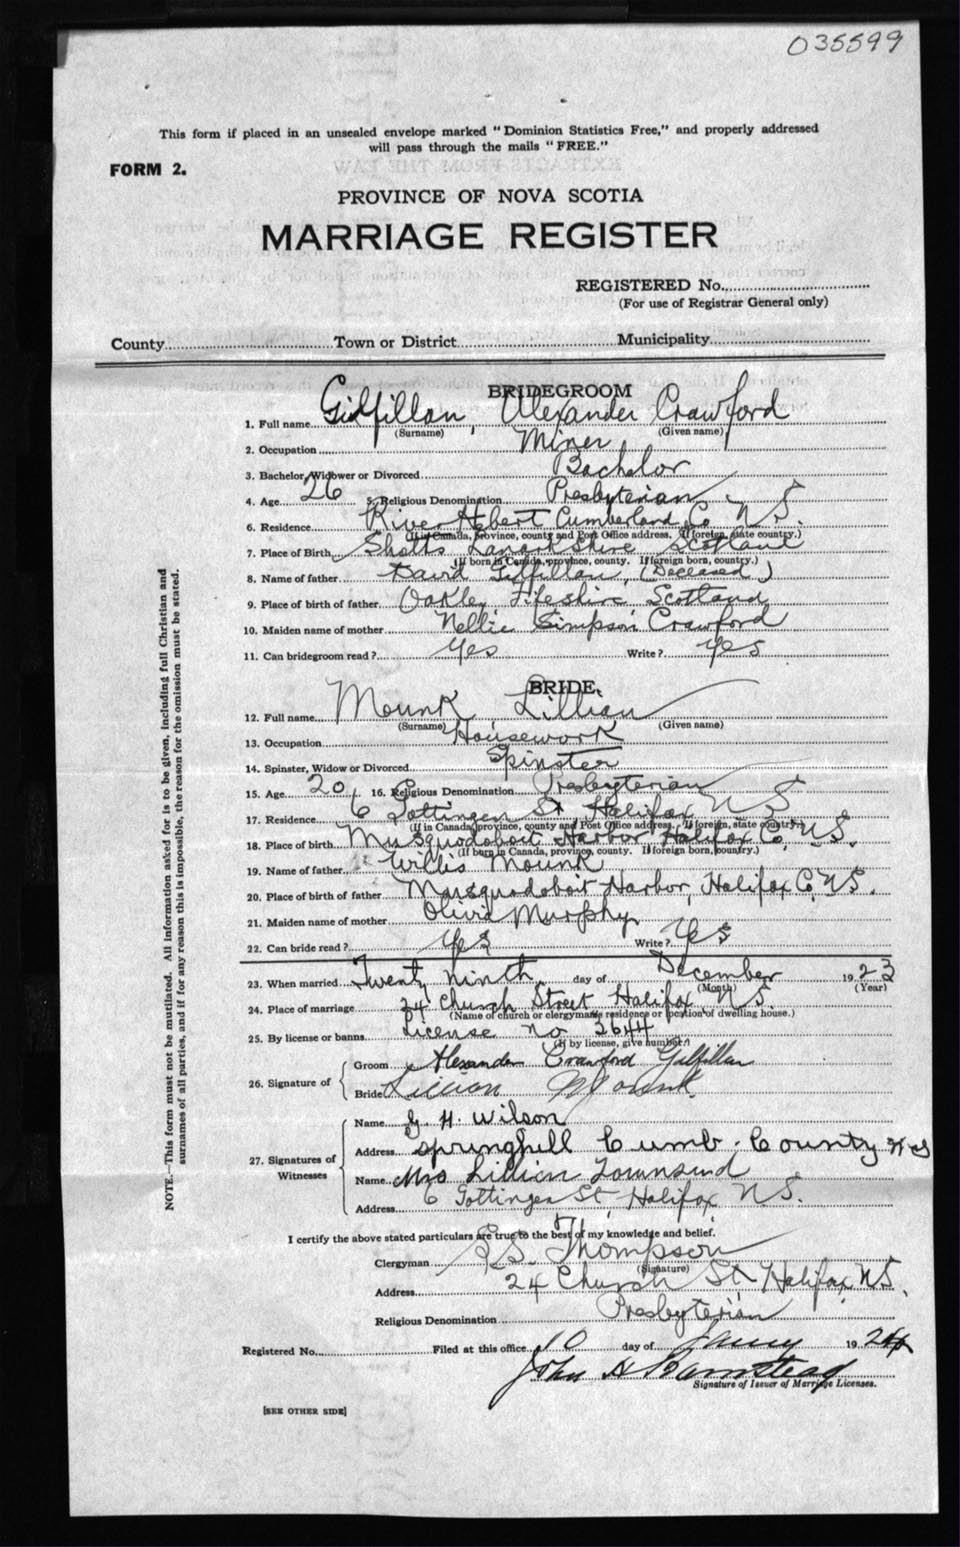 035599
This form if placed in an unsealed envelope marked "Dominion Statistics Free," and properly addressed
will pass through the mails "FREE."
FORM 2.
PROVINCE OF NOVA SCOTIA
MARRIAGE REGISTER
REGISTERED No.
(For use of Registrar General only)
County Town or District Municipality
BRIDEGROOM
1. Full name Gidfillan, Alexander Crawford
(Surname) (Given name)
2. Occupation Miner
3. Bachelor, Widower or Divorced Bachelor
4. Age 26 5. Religious Denomination Presbyterian
6. Residence River Hebert Cumberland Co N.S.
(If in Canada, province, county and Post Office address. If foreign, state country.)
7. Place of Birth Shotts Lanarkshire Scotland
(If born in Canada, province, county. If foreign born, country.)
8. Name of father David Gilfillan, (Deceased)
9. Place of birth of father Oakley, Fifeshire Scotland
10. Maiden name of mother Nellie Simpson Crawford
11. Can bridegroom read? Yes Write? Yes
BRIDE.
12. Full name Mounk Lillian
(Surname) (Given name)
13. Occupation Housework
14. Spinster, Widow or Divorced Spinster
15. Age 20 16. Religious Denomination Presbyterian
17. Residence 6 Gottingen St Halifax N S
(If in Canada, province, county and Post Office address. If foreign, state country.)
18. Place of birth Musquodoboit Harbor Halifax Co, N.S.
(If born in Canada, province, county. If foreign born, country.)
19. Name of father Willis Mounk
20. Place of birth of father Musquodoboit Harbor, Halifax Co, N.S.
21. Maiden name of mother Olivia Murphy
22. Can bride read? Yes Write? Yes
23. When married Twenty Ninth day of December 1923
(Month) (Year)
24. Place of marriage 24 Church Street Halifax N.S.
(Name of church or clergyman's residence or location of dwelling house.)
25. By license or banns License no 2644
(If by license, give number.)
26. Signature of
Groom Alexander Crawford Gilfillan
Bride Lillian Mounk
27. Signatures of Witnesses
Name G. H. Wilson
Address Springhill Cumb. County N S
Name Mrs Lillian Townsend
Address 6 Gottingen St, Halifax N.S.
I certify the above stated particulars are true to the best of my knowledge and belief.
Clergyman Thompson
(Signature)
Address 24 Church St Halifax N.S.
Religious Denomination Presbyterian
Registered No. Filed at this office 10 day of Jany 1924
John A Barnstead
Signature of Issuer of Marriage Licenses.
[SEE OTHER SIDE]
NOTE.—This form must not be mutilated. All information asked for is to be given, including full Christian and
surnames of all parties, and if for any reason this is impossible, the reason for the omission must be stated.